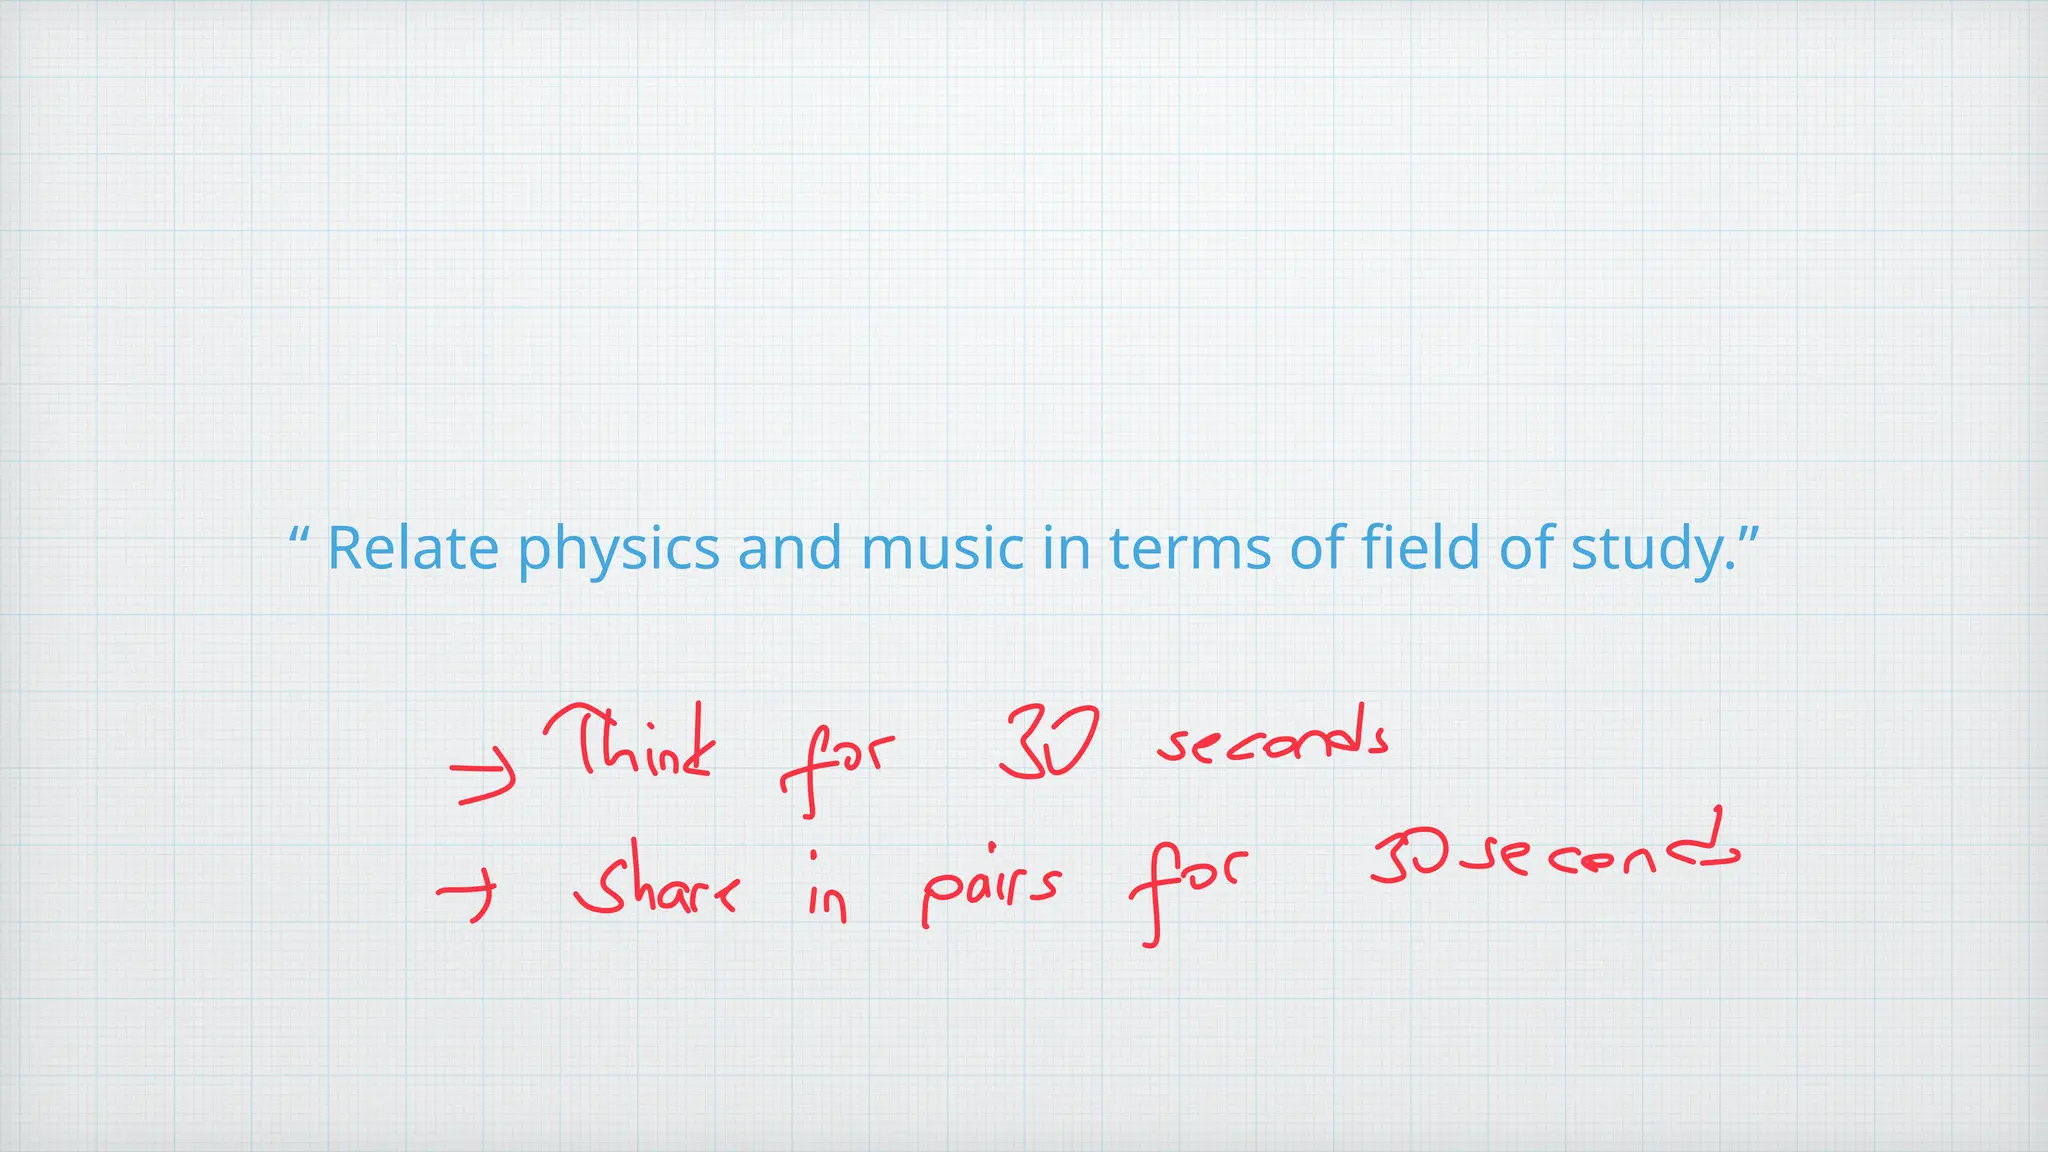 “ Relate physics and music in terms of field of study.”
→ Think for 30 seconds
→ Share in pairs for 30 seconds